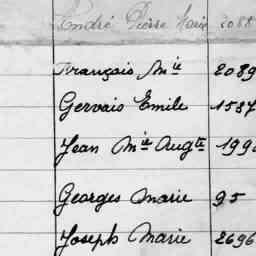 André Pierre Marie 2088
François Mie 2089
Gervais Emile 1587
Jean Mie Augte 199
Georges Marie 95
Joseph Marie 2696